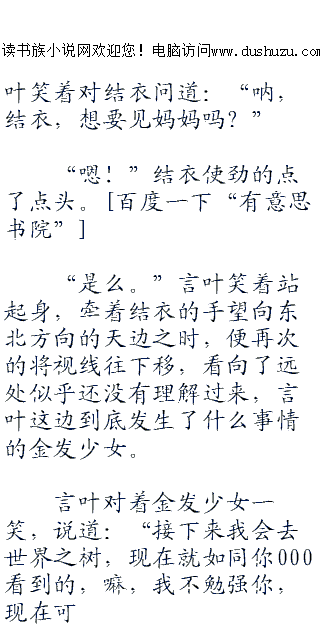 读书族小说网欢迎您！电脑访问www.dushuzu.com
叶笑着对结衣问道：“呐，
结衣，想要见妈妈吗？”
“嗯！”结衣使劲的点
了点头。[百度一下“有意思
书院”]
“是么。”言叶笑着站
起身，牵着结衣的手望向东
北方向的天边之时，便再次
的将视线往下移，看向了远
处似乎还没有理解过来，言
叶这边到底发生了什么事情
的金发少女。
言叶对着金发少女一
笑，说道：“接下来我会去
世界之树，现在就如同你000
看到的，嘛，我不勉强你，
现在可